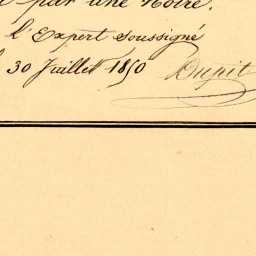 par une Noire.
l'Expert soussigné
30 Juillet 1850 Dupit